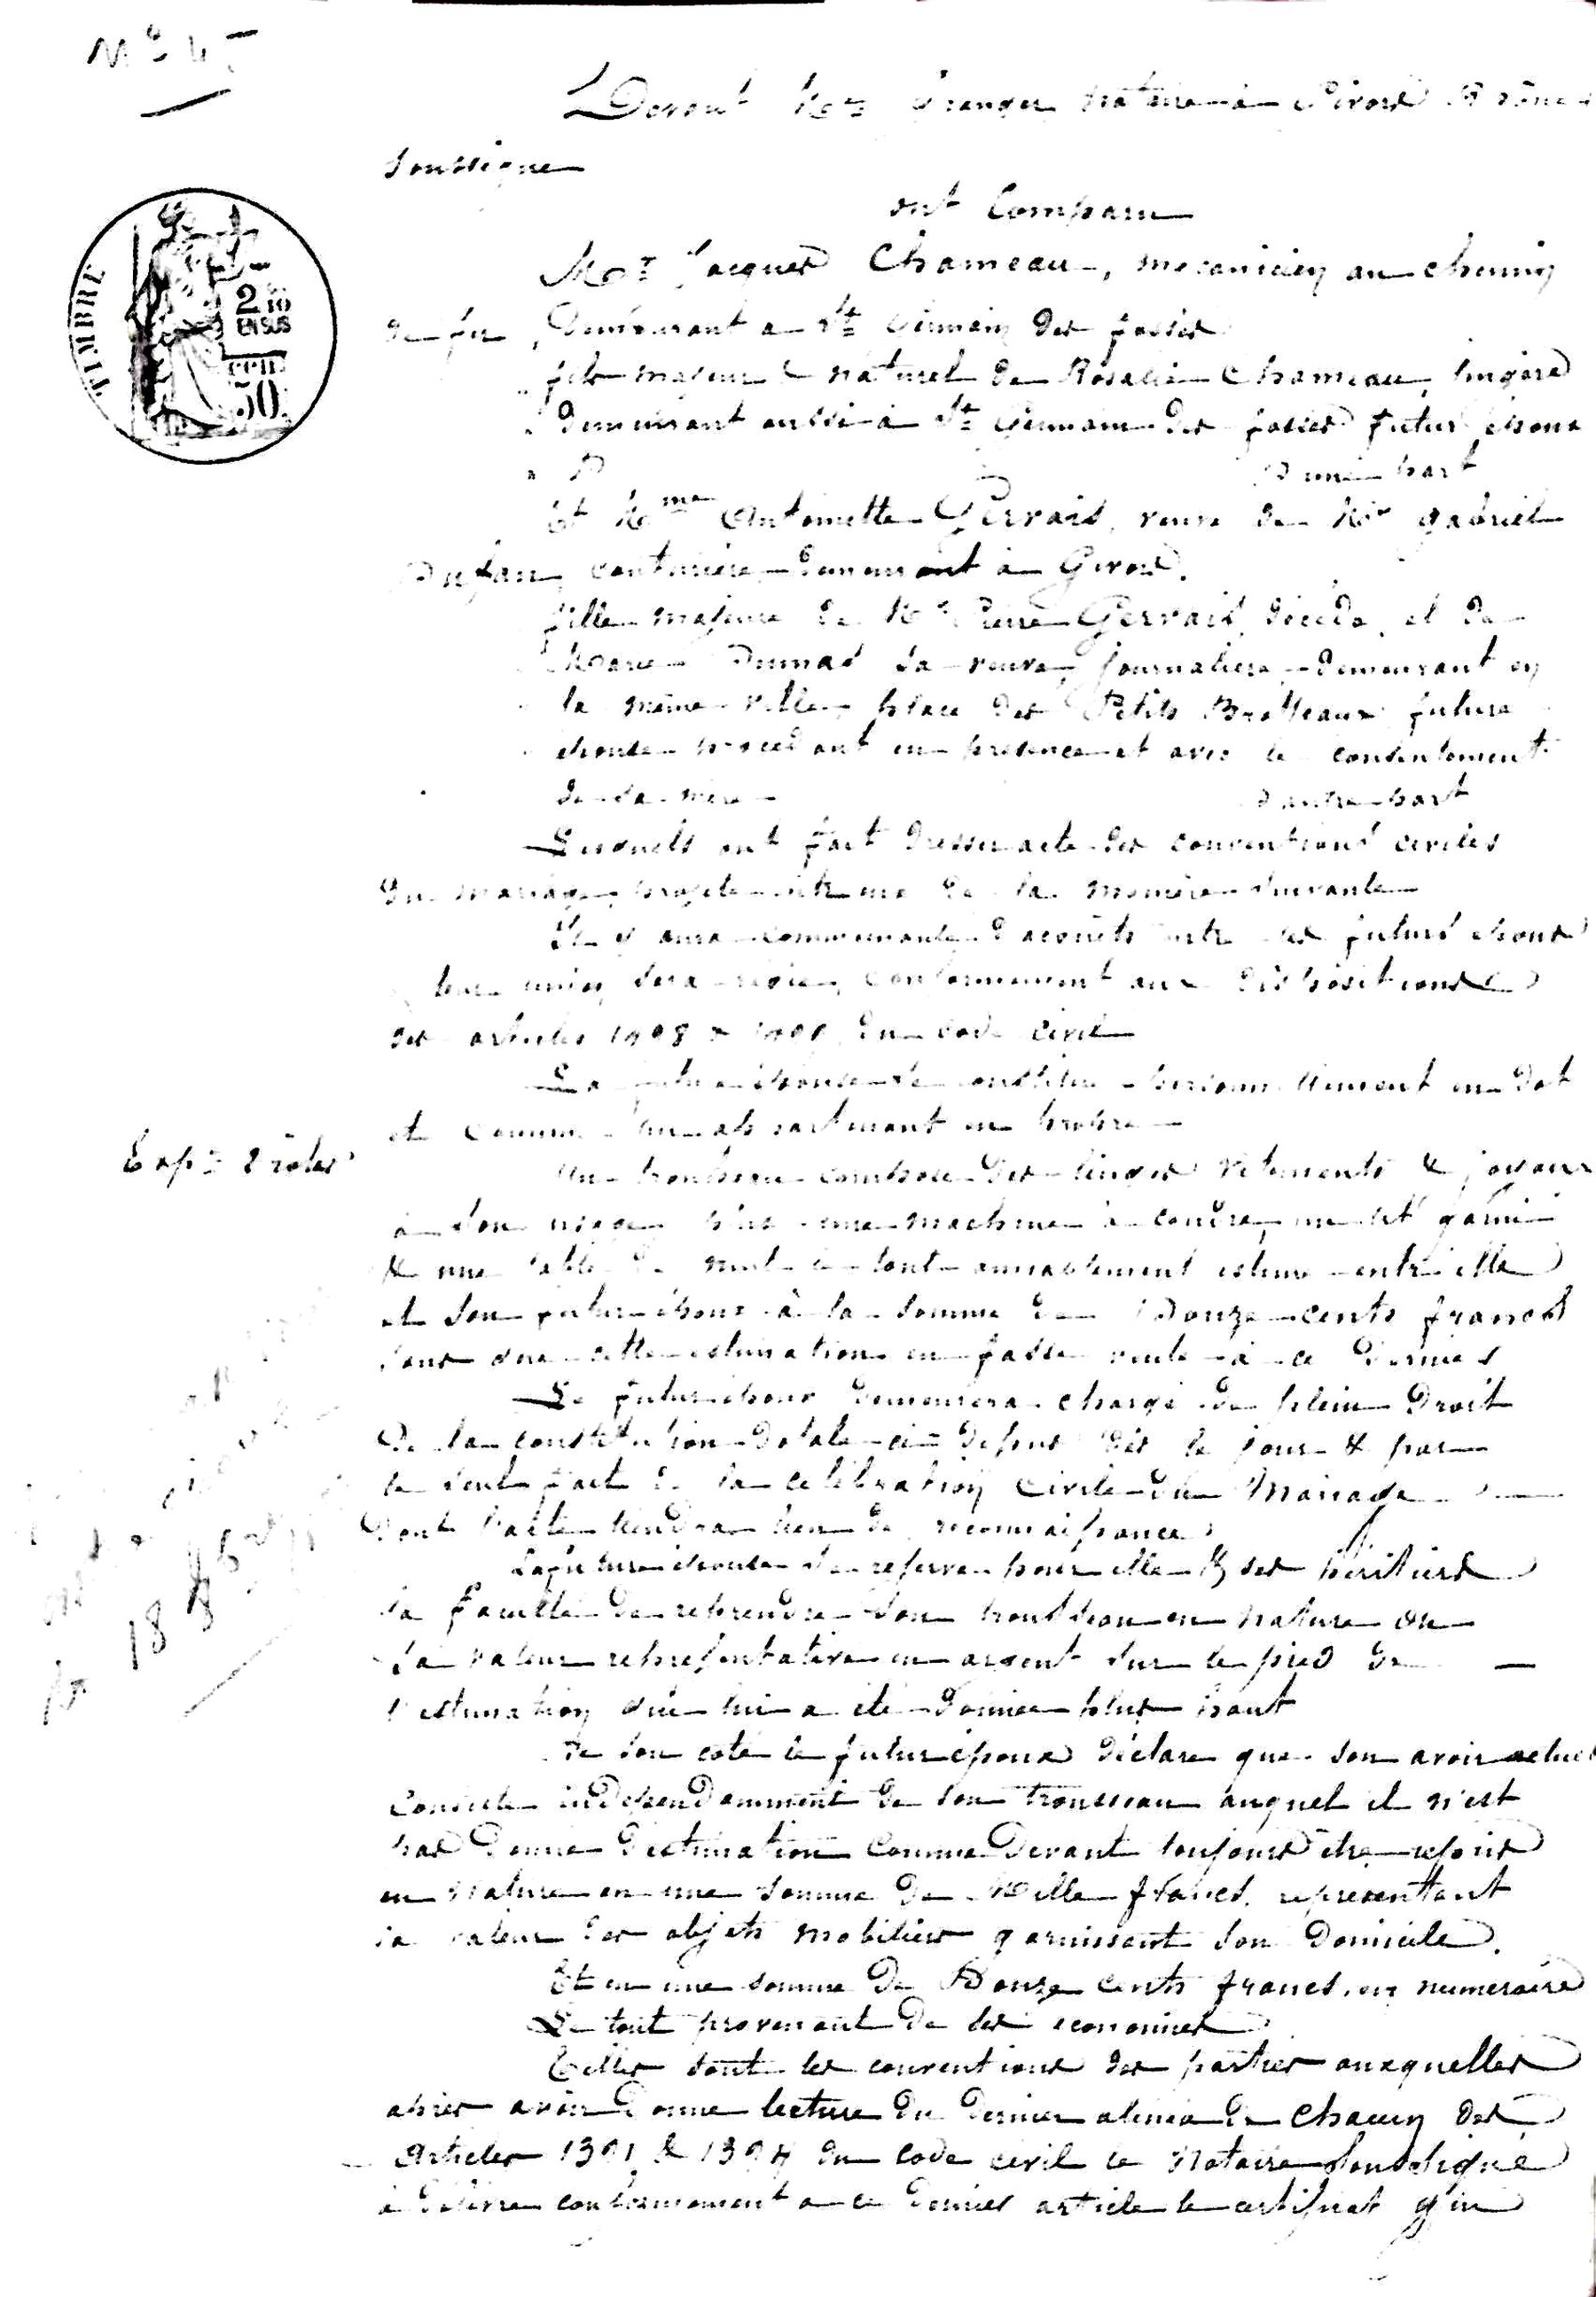 Devant Me Granger notaire à Givors Rhône
soussigné
ont Comparu
Mr Jacques Chameau, mecanicien au chemin
de fer, Demeurant a St Germain des fossés
fils majeur & naturel de Rosalie Chameau, lingère
demeurant aussi à St Germain des fossés futur époux
D'une part
Et Mme Antoinette Gervais, veuve de Mr Gabriel
couturière demeurant à Givors.
fille majeure de Mr Pierre Gervais, décédé, et de
Marie Dumas sa veuve, journalière, demeurant en
la même ville, place des Petits Brotteaux future
épouse procédant en présence et avec le consentement
de sa mère
d'autre part
Lesquels ont fait dresser acte des conventions civiles
du mariage projeté entre eux de la manière suivante
Il y aura communauté d'acquêts entre les futurs époux
leur union sera régie, conformement aux dispositions
des articles 1498 & 1499 du code civil
La future épouse se constitue personnellement en dot
et comme lui appartenant en propre
Exp: 2 roles
Un trousseau composé des linges vetements & joyaux
à son usage plus une machine à coudre, un lit garni
& une table de nuit le tout amiablement estimé entre elle
et son futur époux à la somme de Douze cents francs
sans que cette estimation en fasse vente à ce dernier
Le futur époux demeurera chargé de plein Droit
De la constitution dotale ci-dessus dès le jour & par
le seul fait de la celebration civile du Mariage
Dont l'acte tiendra lieu de reconnaissance
La future épouse se reserve pour elle & ses héritiers
la faculté de reprendre son trousseau en nature ou
sa valeur representative en argent sur le pied de
l'estimation qui lui a été donnée plus haut
De son coté le futur époux déclare que son avoir actuel
Consiste independamment de son trousseau auquel il n'est
pas donné d'estimation comme devant toujours être repris
en nature en une somme de Mille francs, representant
la valeur des objets mobiliers garnissant son Domicile.
Et en une somme de Douze cents francs, en numeraire
Le tout provenant de ses economies
Telles sont les conventions des parties auxquelles
après avoir donné lecture du dernier alinea de chacun des
Articles 1391 & 1394 du code civil le Notaire soussigné
à délivré conformement a ce dernier article le certificat qu'il
TIMBRE
2/10
EN SUS
50
18